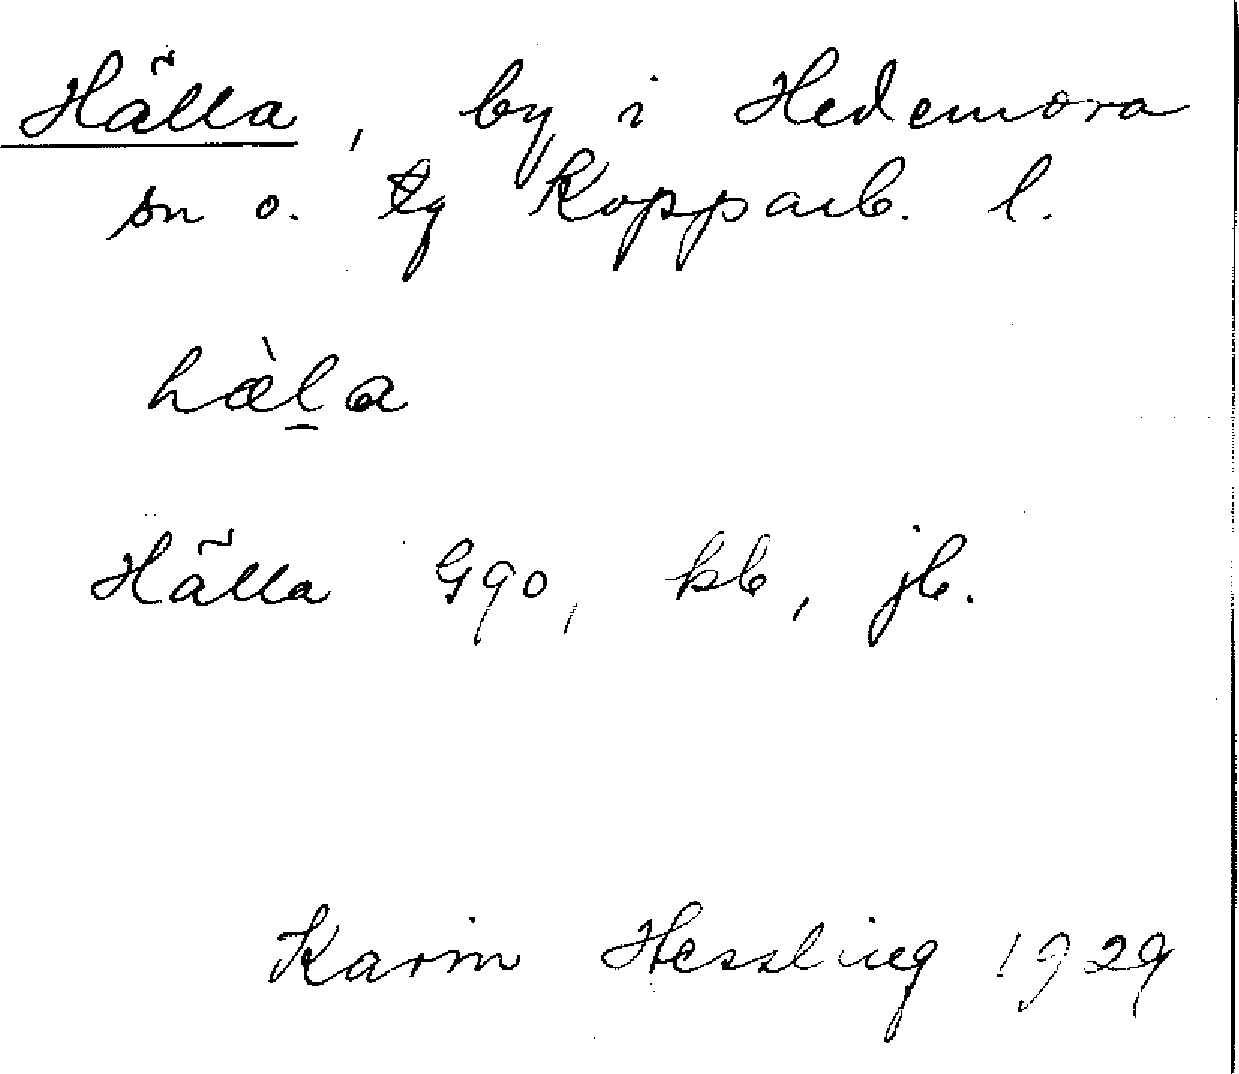 Hälla, by i Hedemora
sn o. tg Kopparb. l.
hæ̀l̠a
Hälla Ggo, kb, jb.
Karin Hessling 1929